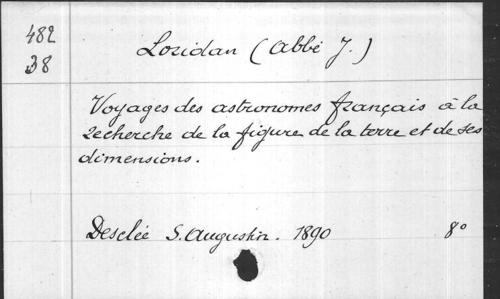 482
38
Loridan (Abbé J.)
Voyages des astronomes français à la
recherche de la figure de la terre et de ses
dimensions.
Desclée S. Augustin. 1890 8º